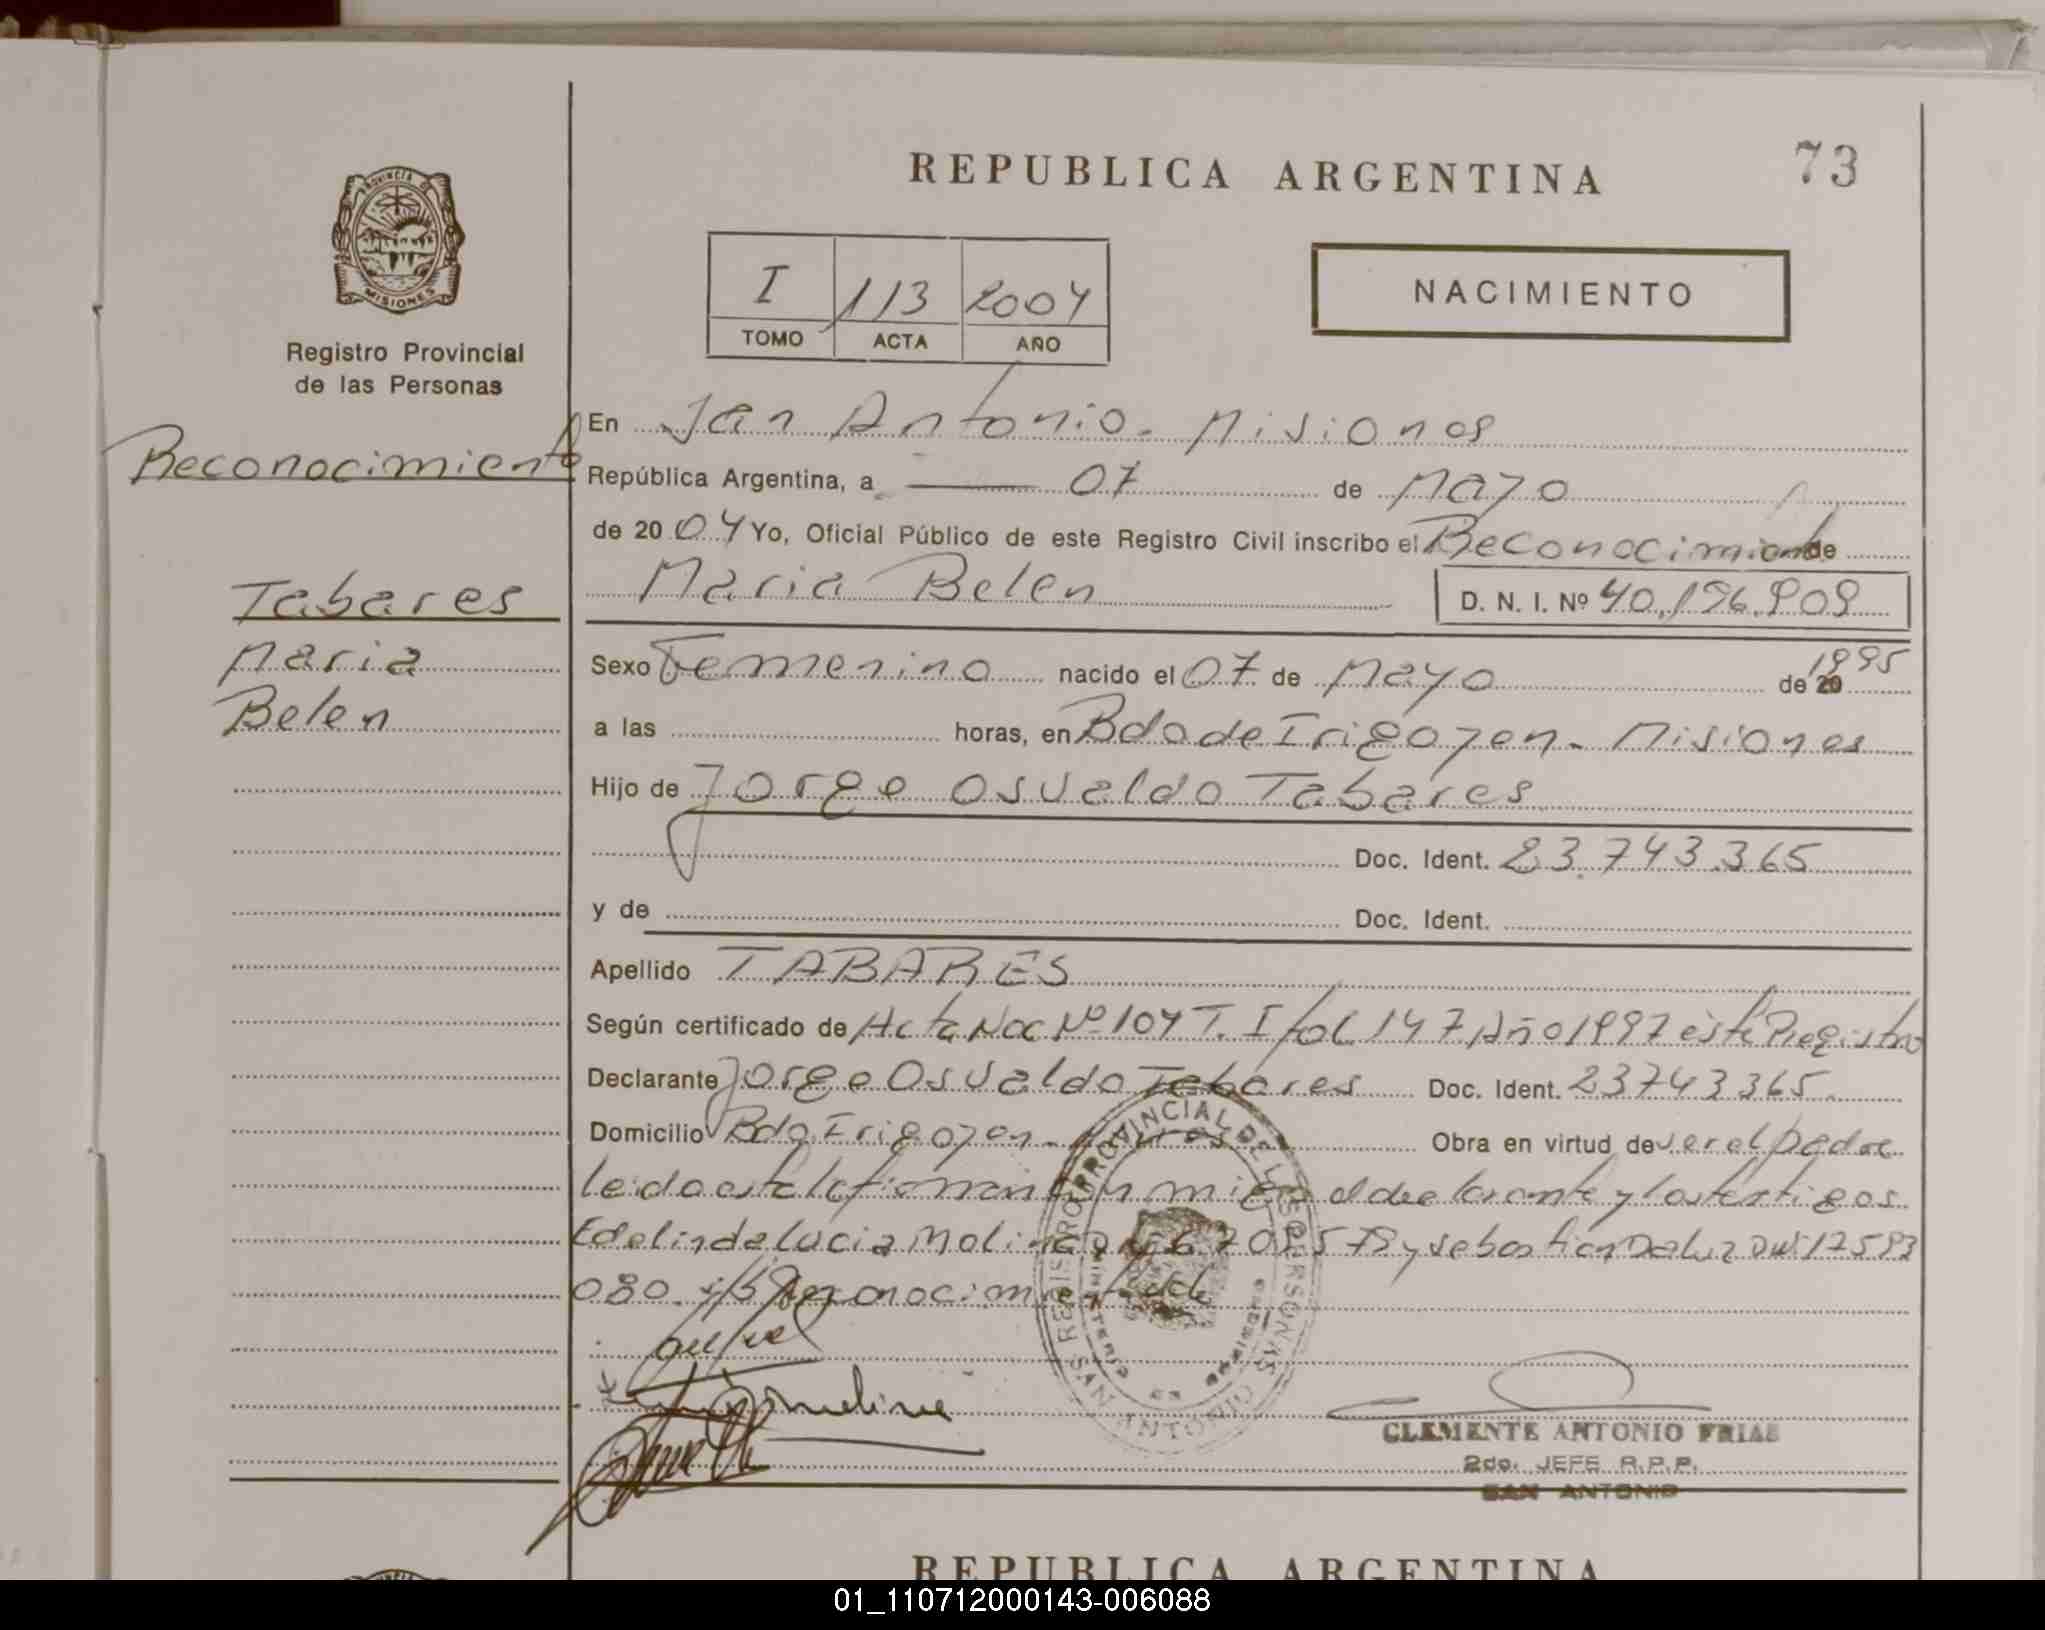 REPUBLICA ARGENTINA
73
PROVINCIA DE
MISIONES
Registro Provincial
de las Personas
I 113 2004
TOMO ACTA AÑO
NACIMIENTO
Reconocimiento
Tabares
Maria
Belen
En San Antonio - Misiones
República Argentina, a 07 de Mayo
de 2004 Yo, Oficial Público de este Registro Civil inscribo el Reconocimiento de
Maria Belen D. N. I. Nº 40.196.909
Sexo Femenino nacido el 07 de Mayo de 20 1995
a las horas, en Bdo de Irigoyen - Misiones
Hijo de Jorge Osvaldo Tabares
Doc. Ident. 23.743.365
y de Doc. Ident.
Apellido TABARES
Según certificado de Acta Nac Nº 104 T. I fol 147 Año 1997 este Registro
Declarante Jorge Osvaldo Tabares Doc. Ident. 23743365
Domicilio Bdo Irigoyen - Obra en virtud de ser el padre
leida acta la firman con migo el declarante y los testigos
Edelinda Lucia Molina y Sebastian Daluz DNI 17593
080 Reconocimiento
REGISTRO PROVINCIAL DE LAS PERSONAS
MINISTERIO DE GOBIERNO
SAN ANTONIO
CLEMENTE ANTONIO FRIAS
2do. JEFE R.P.P.
SAN ANTONIO
REPUBLICA ARGENTINA
01_110712000143-006088